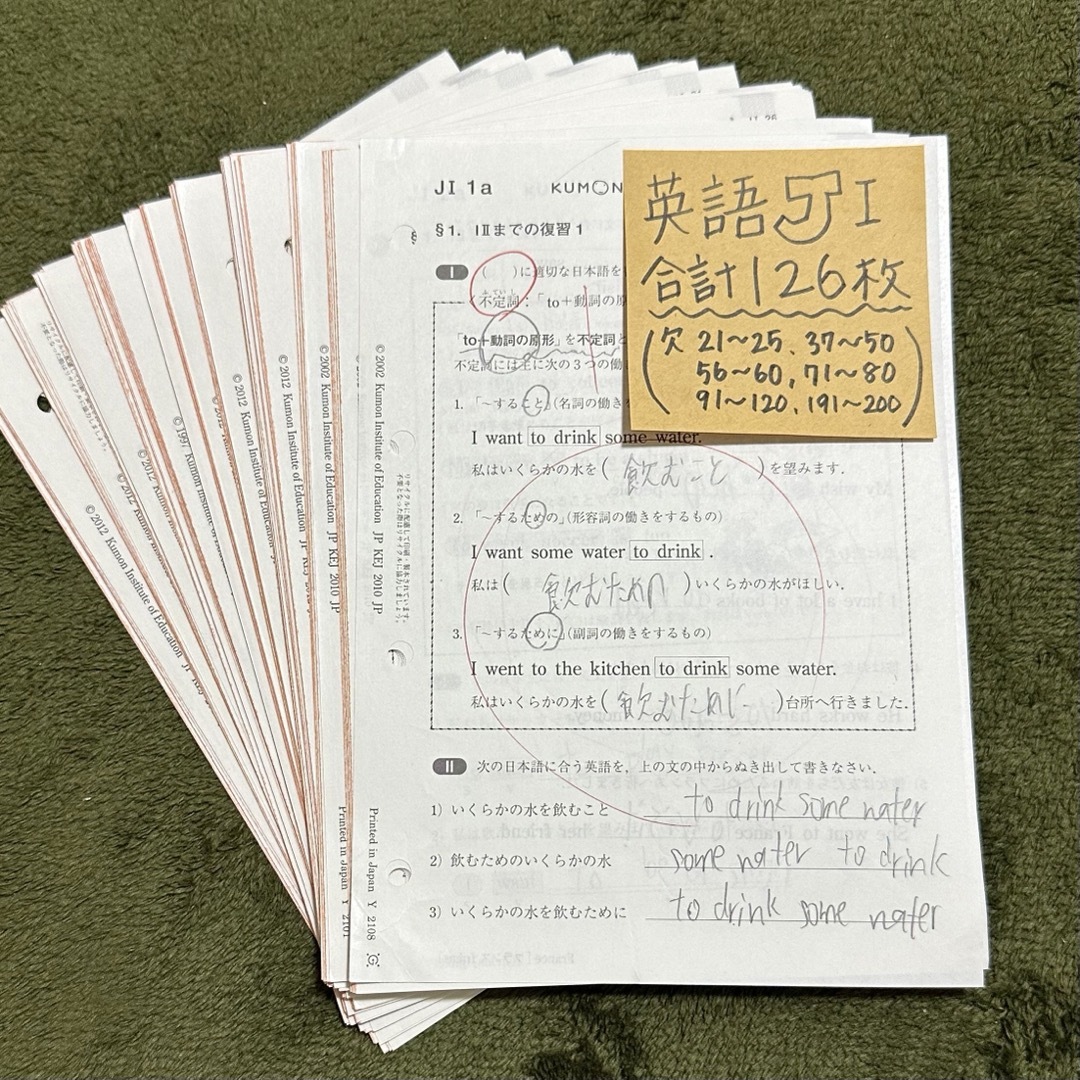 JI 1a
KUMON
§1. IⅡまでの復習1
英語JI
合計126枚
(欠 21〜25、37〜50
56〜60, 71〜80
91〜120, 191〜200)
I ( )に適切な日本語を
ふていし
〈不定詞:「to+動詞の原
「to+動詞の原形」を不定詞と
不定詞には主に次の3つの働
1.「〜すること」(名詞の働き
I want to drink some water.
私はいくらかの水を( 飲むこと )を望みます.
2.「〜するための」(形容詞の働きをするもの)
I want some water to drink .
私は( 飲むための )いくらかの水がほしい.
3.「〜するために」(副詞の働きをするもの)
I went to the kitchen to drink some water.
私はいくらかの水を( 飲むために )台所へ行きました.
II 次の日本語に合う英語を, 上の文の中からぬき出して書きなさい.
1) いくらかの水を飲むこと to drink some water
2) 飲むためのいくらかの水 some water to drink
3) いくらかの水を飲むために to drink some water
© 2002 Kumon Institute of Education JP KEJ 2010 JP
Printed in Japan Y 2108
© 2002 Kumon Institute of Education JP KEJ 2010 JP
Printed in Japan Y 2101
© 2012 Kumon Institute of Education JP KEJ
© 2012 Kumon Institute of Education
© 2012 Kumon Institute of Education
© 1997 Kumon Institute of
© 2012 Kumon Institute of
© 2012 Kumon Institute of Education